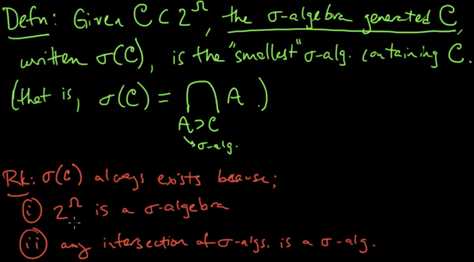 Defn: Given C ⊂ 2^Ω, the σ-algebra generated C,
written σ(C), is the "smallest" σ-alg. containing C.
(that is, σ(C) = ⋂ A.)
A⊃C
σ-alg.
Rk: σ(C) always exists because;
(i) 2^Ω is a σ-algebra
(ii) any intersection of σ-algs. is a σ-alg.